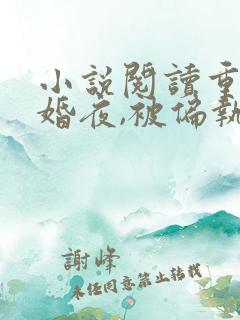 小說閱讀重
婚夜,被偏執
謝峰
未經同意禁止轉載